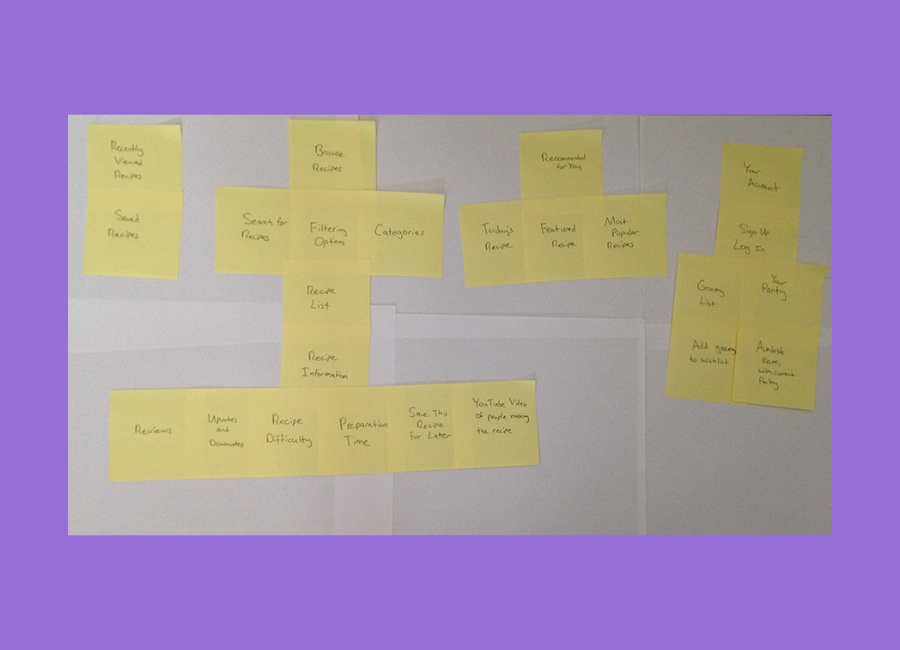 Recently
Viewed
Recipes
Saved
Recipes
Browse
Recipes
Search for
Recipes
Filtering
Option
Categories
Recipe
List
Recipe
Information
Reviews
Upvotes
and
Downvotes
Recipe
Difficulty
Preparation
Time
Save This
Recipe
For Later
YouTube Video
of people making
the recipe
Recommended
for You
Today's
Recipe
Featured
Recipe
Most
Popular
Recipes
Your
Account
Sign Up
Log In
Grocery
List
Your
Pantry
Add grocery
to wishlist
Available
with current
Pantry